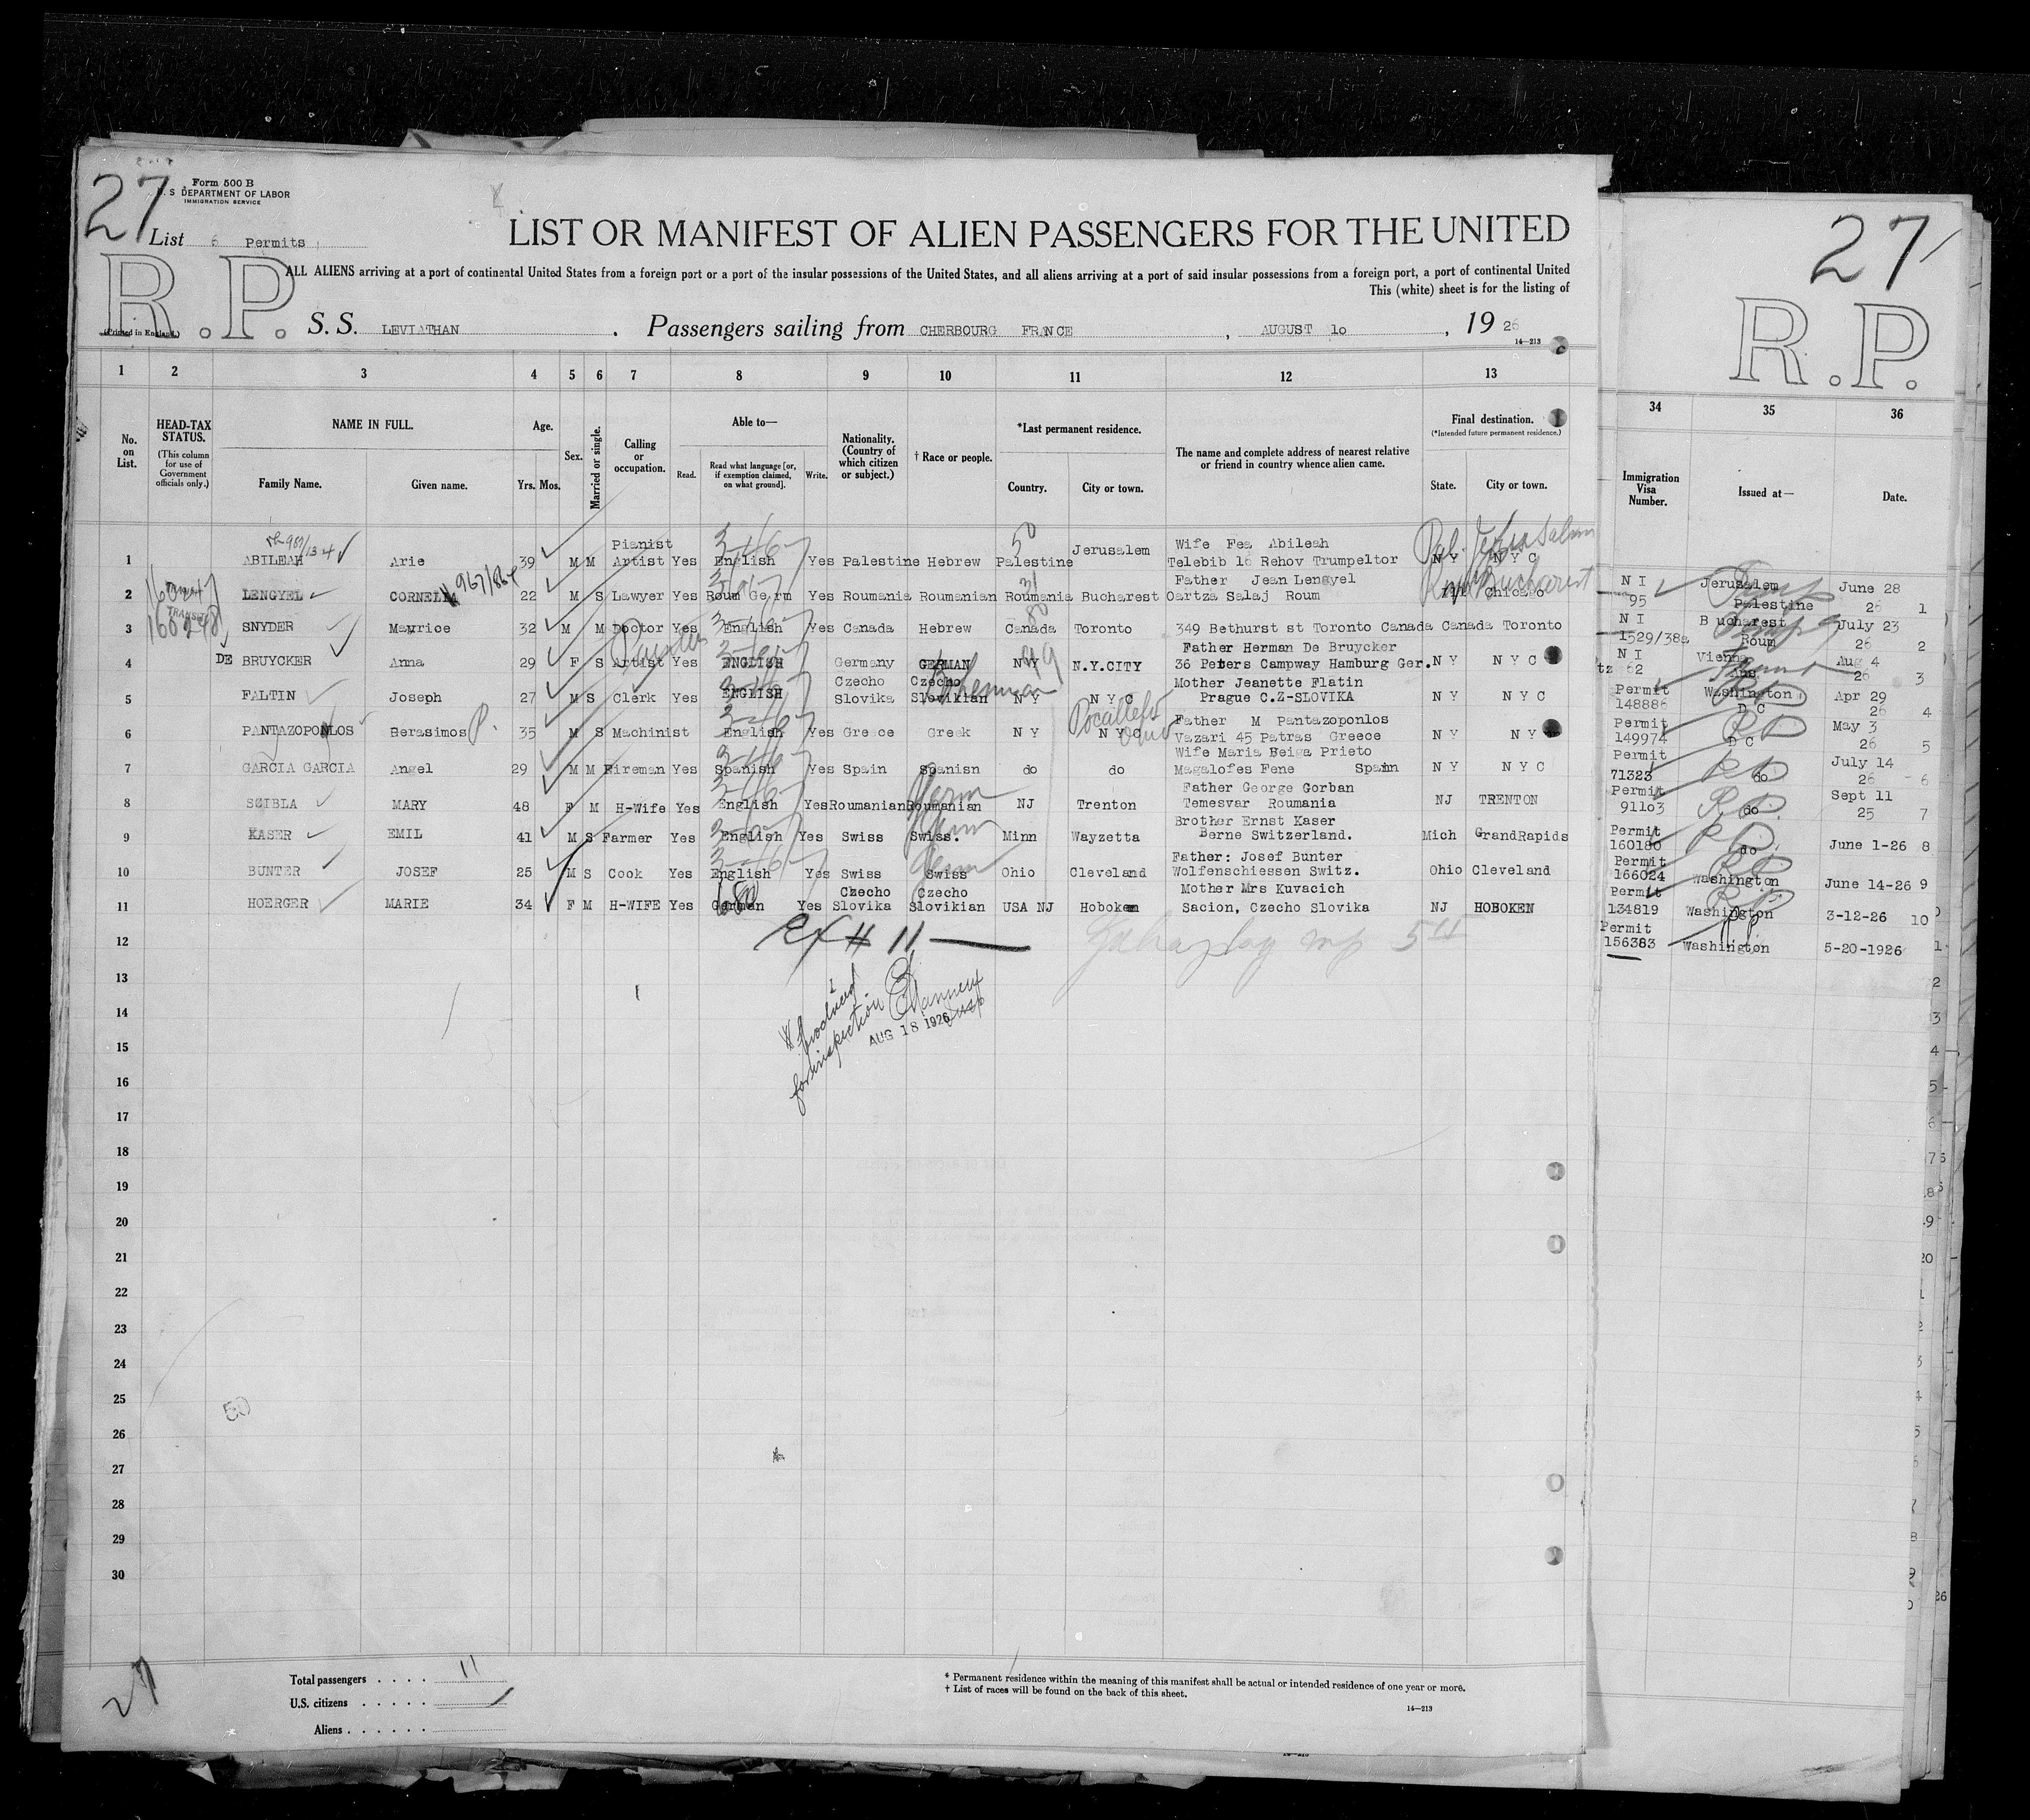 27
Form 500 B
U. S DEPARTMENT OF LABOR
IMMIGRATION SERVICE
List 6 Permits
R.P.
(Printed in England.)
LIST OR MANIFEST OF ALIEN PASSENGERS FOR THE UNITED
ALL ALIENS arriving at a port of continental United States from a foreign port or a port of the insular possessions of the United States, and all aliens arriving at a port of said insular possessions from a foreign port, a port of continental United
This (white) sheet is for the listing of
S. S. LEVIATHAN . Passengers sailing from CHERBOURG FRANCE , AUGUST 10 , 19 26
14—213
27
R.P.
1 2 3 4 5 6 7 8 9 10 11 12 13 34 35 36
No. on List.
HEAD-TAX STATUS.
(This column for use of Government officials only.)
NAME IN FULL.
Family Name. Given name.
Age.
Yrs. Mos.
Sex.
Married or single.
Calling or occupation.
Able to—
Read. Read what language [or, if exemption claimed, on what ground]. Write.
Nationality. (Country of which citizen or subject.)
† Race or people.
*Last permanent residence.
Country. City or town.
The name and complete address of nearest relative or friend in country whence alien came.
Final destination.
(*Intended future permanent residence.)
State. City or town.
Immigration Visa Number.
Issued at—
Date.
Pianist Wife Fea Abileah
1 ABILEAH Arie 39 M M Artist Yes English Yes Palestine Hebrew Palestine Jerusalem Telebib 16 Rehov Trumpeltor N Y N Y C
Father Jean Lengyel
2 LENGYEL CORNELIA 22 M S Lawyer Yes Roum Germ Yes Roumania Roumanian Roumania Bucharest Oartza Salaj Roum Chicago
TRANSIT
3 SNYDER Maurice 32 M M Doctor Yes English Yes Canada Hebrew Canada Toronto 349 Bethurst st Toronto Canada Canada Toronto
Father Herman De Bruycker
4 DE BRUYCKER Anna 29 F S Artist Yes ENGLISH Germany GERMAN N Y N.Y.CITY 36 Peters Campway Hamburg Ger. N Y N Y C
Czecho Czecho Mother Jeanette Flatin
5 FALTIN Joseph 27 M S Clerk Yes ENGLISH Slovika Slovikian N Y N Y C Prague C.Z-SLOVIKA N Y N Y C
Father M Pantazoponlos
6 PANTAZOPONLOS Berasimos P. 35 M S Machinist English Yes Greece Greek N Y N Y C Vazari 45 Patras Greece N Y N Y
Wife Maria Beiga Prieto
7 GARCIA GARCIA Angel 29 M M Fireman Yes Spanish Yes Spain Spanisn do do Magalofes Fene Spain N Y N Y C
Father George Gorban
8 SZIBLA MARY 48 F M H-Wife Yes English Yes Roumanian Roumanian NJ Trenton Temesvar Roumania NJ TRENTON
Brother Ernst Kaser
9 KASER EMIL 41 M S Farmer Yes English Yes Swiss Swiss. Minn Wayzetta Berne Switzerland. Mich GrandRapids
Father: Josef Bunter
10 BUNTER JOSEF 25 M S Cook Yes English Yes Swiss Swiss Ohio Cleveland Wolfenschiessen Switz. Ohio Cleveland
Czecho Czecho Mother Mrs Kuvacich
11 HOERGER MARIE 34 F M H-WIFE Yes German Yes Slovika Slovikian USA NJ Hoboken Sacion, Czecho Slovika NJ HOBOKEN
12
13
14
15
16
17
18
19
20
21
22
23
24
25
26
27
28
29
30
AUG 18 1926
N I Jerusalem June 28
95 Palestine 26 1
N I Bucharest July 23
1529/38a Roum 26 2
N I Vienna Aug 4
62 Aus 26 3
Permit Washington Apr 29
148886 D C 26 4
Permit May 3
149974 D C 26 5
Permit July 14
71323 do 26 6
Permit Sept 11
91103 do 25 7
Permit
160180 do June 1-26 8
Permit
166024 Washington June 14-26 9
Permit
134819 Washington 3-12-26 10
Permit
156383 Washington 5-20-1926
50
27
Total passengers . . . . 11
U.S. citizens . . . . .
Aliens . . . . .
* Permanent residence within the meaning of this manifest shall be actual or intended residence of one year or more.
† List of races will be found on the back of this sheet.
14—213